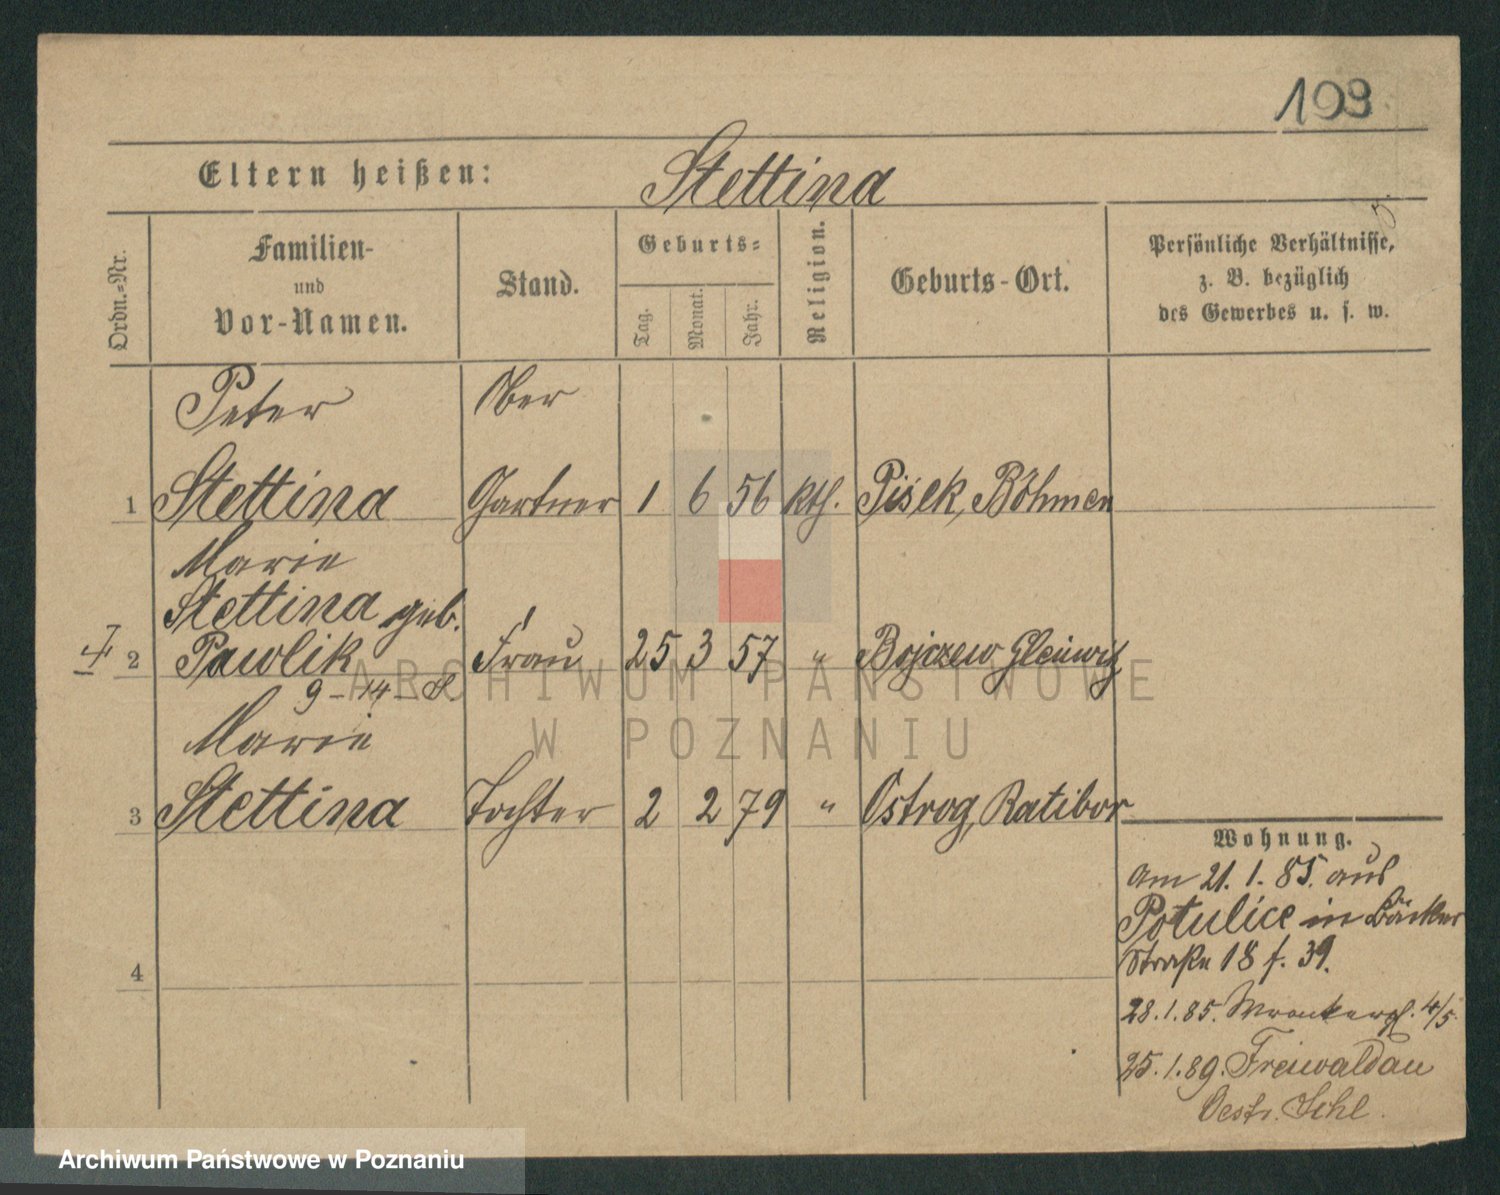 193
Eltern heißen: Stettina
Ordn.-Nr.
Familien-
und
Vor-Namen.
Stand.
Geburts-
Tag. Monat. Jahr.
Religion.
Geburts-Ort.
Persönliche Verhältnisse,
z. B. bezüglich
des Gewerbes u. s. w.
Peter Ober
1 Stettina Gartner 1 6 56 kth. Pisek, Böhmen
Marie
Stettina geb.
2 Pawlik Frau 25 3 57 " Bojczew Gleiwitz
9-14-8
Marie
3 Stettina Tochter 2 2 79 " Ostrog, Ratibor
4
Wohnung.
am 21. 1. 85. aus
Potulice in Bäcker
Straße 18 f. 39.
28.1.85. Wronkerpl. 4/5.
25.1.89. Freiwaldau
Oestr. Schl.
ARCHIWUM PAŃSTWOWE
W POZNANIU
Archiwum Państwowe w Poznaniu